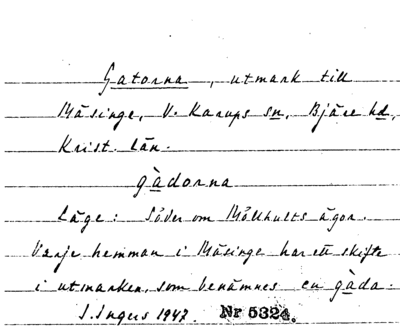 Gatorna, utmark till
Mäsinge, V. Karups sn, Bjäre hd,
Krist. län.
gàdorna
Läge: Söder om Möllhults ägor.
Varje hemman i Mäsinge har ett skifte
i utmarken, som benämnes en gàda.
I. Ingers 1947. Nr 5324.